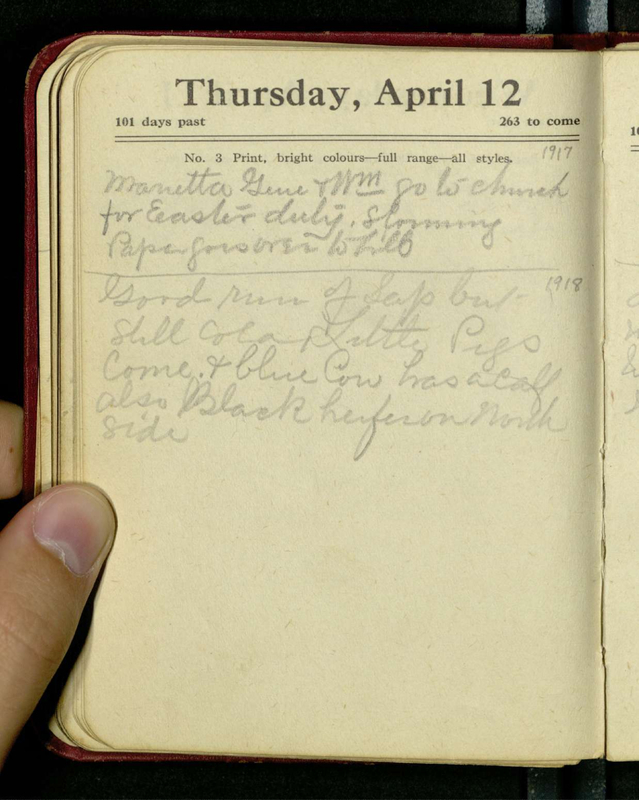 Thursday, April 12
101 days past 263 to come
No. 3 Print, bright colours—full range—all styles. 1917
Marietta Gene & Wm go to church
for Easter duty. Storming
Papa goes over to
Good run of Sap but 1918
Still Cold & Little Pigs
Come. & blue Cow has a calf
also Black heifer on North
Side